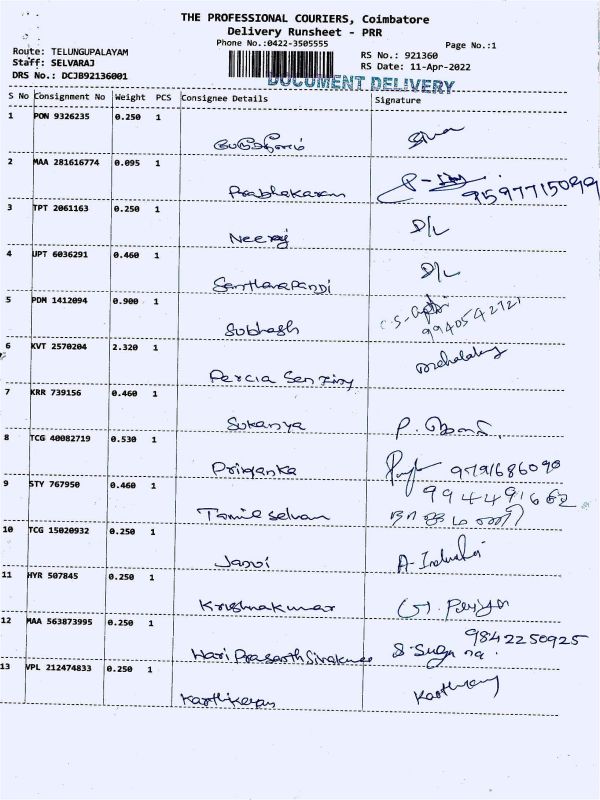 THE PROFESSIONAL COURIERS, Coimbatore
Delivery Runsheet - PRR
Phone No.:0422-3505555
Page No.:1
Route: TELUNGUPALAYAM
Staff: SELVARAJ
DRS No.: DCJB92136001
RS No.: 921360
RS Date: 11-Apr-2022
DOCUMENT DELIVERY
S No Consignment No Weight PCS Consignee Details Signature
1 PON 9326235 0.250 1
2 MAA 281616774 0.095 1
Prabhakaran
3 TPT 2061163 0.250 1
Neeraj D/L
4 UPT 6036291 0.460 1
Santhanapandi D/L
5 PDM 1412094 0.900 1
Subhash 9940542121
6 KVT 2570204 2.320 1
Percia
7 KRR 739156 0.460 1
Sukanya P.
8 TCG 40082719 0.530 1
Priyanka 9791686090
9 STY 767950 0.460 1
Tamilselvan நாகமணி
10 TCG 15020932 0.250 1
Janvi A-
11 HYR 507845 0.250 1
Krishnakumar
12 MAA 563873995 0.250 1
9842250925
Hari Prasanth Sivakumar
13 VPL 212474833 0.250 1
Karthikeyan